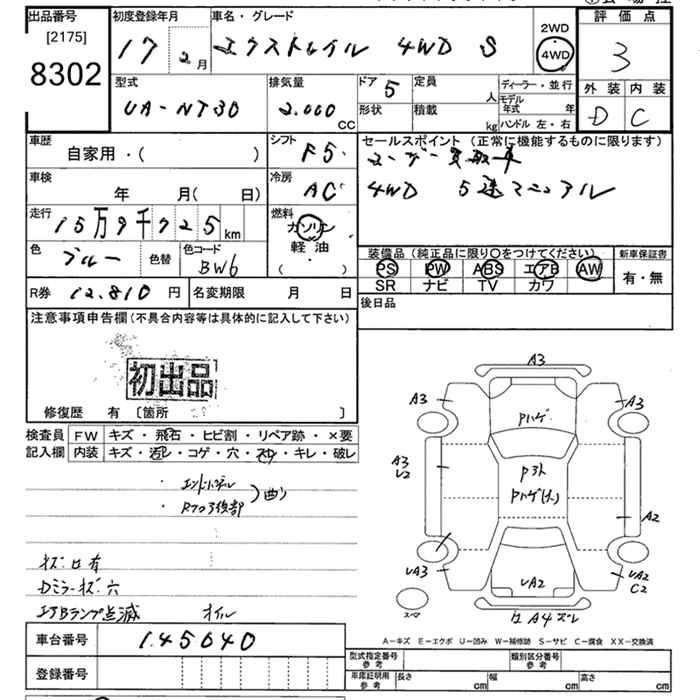 出品番号 初度登録年月 車名・グレード 評価点
[2175]
8302
17 2月 エクストレイル 4WD S 2WD 4WD 3
型式 排気量 ドア 定員 ディーラー・並行 外装 内装
UA-NT30 2.000 CC 5 人 モデル年式 年 D C
形状 積載 kg ハンドル 左・右
車歴 シフト セールスポイント (正常に機能するものに限ります)
自家用・( ) F5 ユーザー買取車
車検 冷房
年 月( 日) AC 4WD 5速マニュアル
走行 燃料
15万9千725km ガソリン
色 色替 色コード 軽油
ブルー BW6 ( ・ )
装備品 (純正品に限り〇をつけてください) 新車保証書
PS PW ABS エアB AW 有・無
SR ナビ TV カワ
R券 12,810円 名変期限 月 日 後日品
注意事項申告欄(不具合内容等は具体的に記入して下さい)
初出品
修復歴 有 〔箇所 〕
検査員 FW キズ・飛石・ヒビ割・リペア跡・×要
記入欄 内装 キズ・汚レ・コゲ・穴・スレ・キレ・破レ
・エンドパネル
・Rフロア後部 )曲り
キズ凹有
Dミラーキズ穴
エアBランプ点滅 オイル
車台番号 145640
登録番号
A3
A3 A3
Pハゲ
A3
U2
Pヌト
Pハゲ(大)
A2
UA3 UA2 UA2
C2
スペア
凹A4ズレ
A-キズ E-エクボ U-凹み W-補修跡 S-サビ C-腐食 XX-交換済
型式指定番号 参考 類別区分番号 参考
車庫証明用 参考 長さ cm 幅 cm 高さ cm